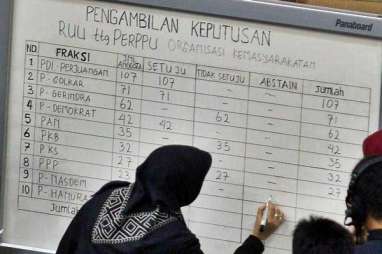 Panaboard
PENGAMBILAN KEPUTUSAN
RUU ttg PERPPU ORGANISASI KEMASYARAKATAN
NO. FRAKSI JML ANGGOTA SETUJU TIDAK SETUJU ABSTAIN Jumlah
1 PDI PERJUANGAN 107 107 - - 107
2 P-GOLKAR 71 71 - - 71
3 P-GERINDRA 62 - 62 - 62
4 P-DEMOKRAT 42 42 - - 42
5 PAN 35 - 35 - 35
6 PKB 32
7 PKS 27 - 27 - 27
8 PPP
9 P-NASDEM
10 P-HANURA
Jumlah